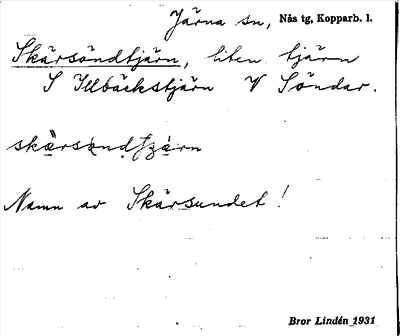 Järna sn, Nås tg, Kopparb. l.
Skärsöndtjärn, liten tjärn
S Illbäckstjärn V Söndar.
Namn av Skärsundet!
Bror Lindén 1931